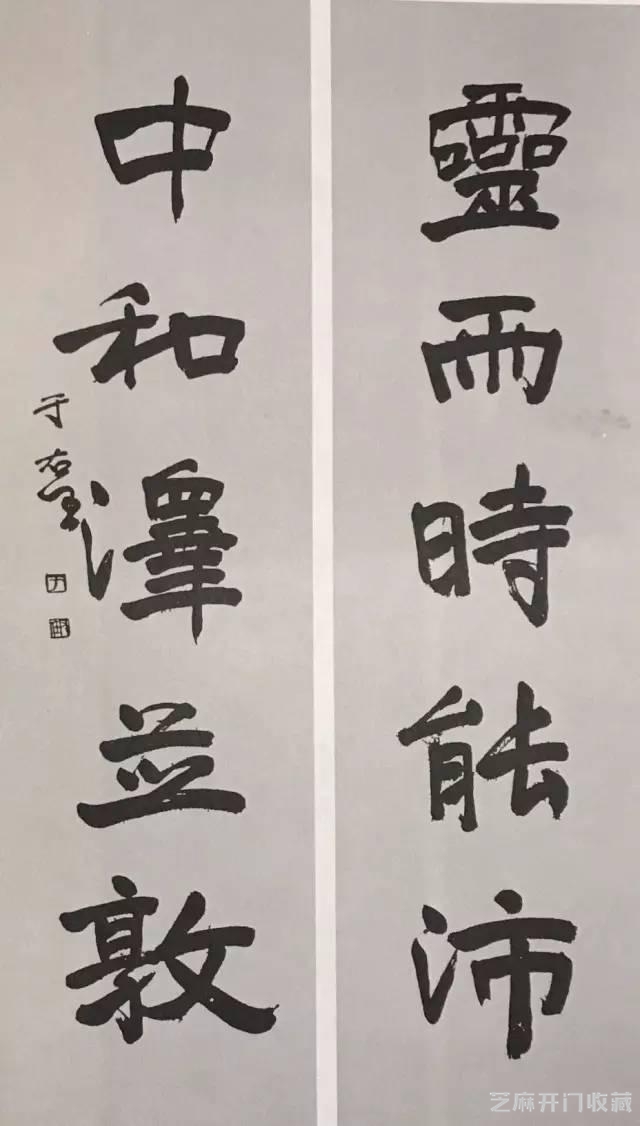 靈雨時能沛
中和澤並敦
于右任
芝麻开门收藏